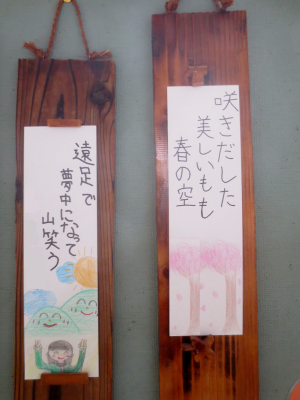 咲きだした
美しいもも
春の空
遠足で
夢中になって
山笑う